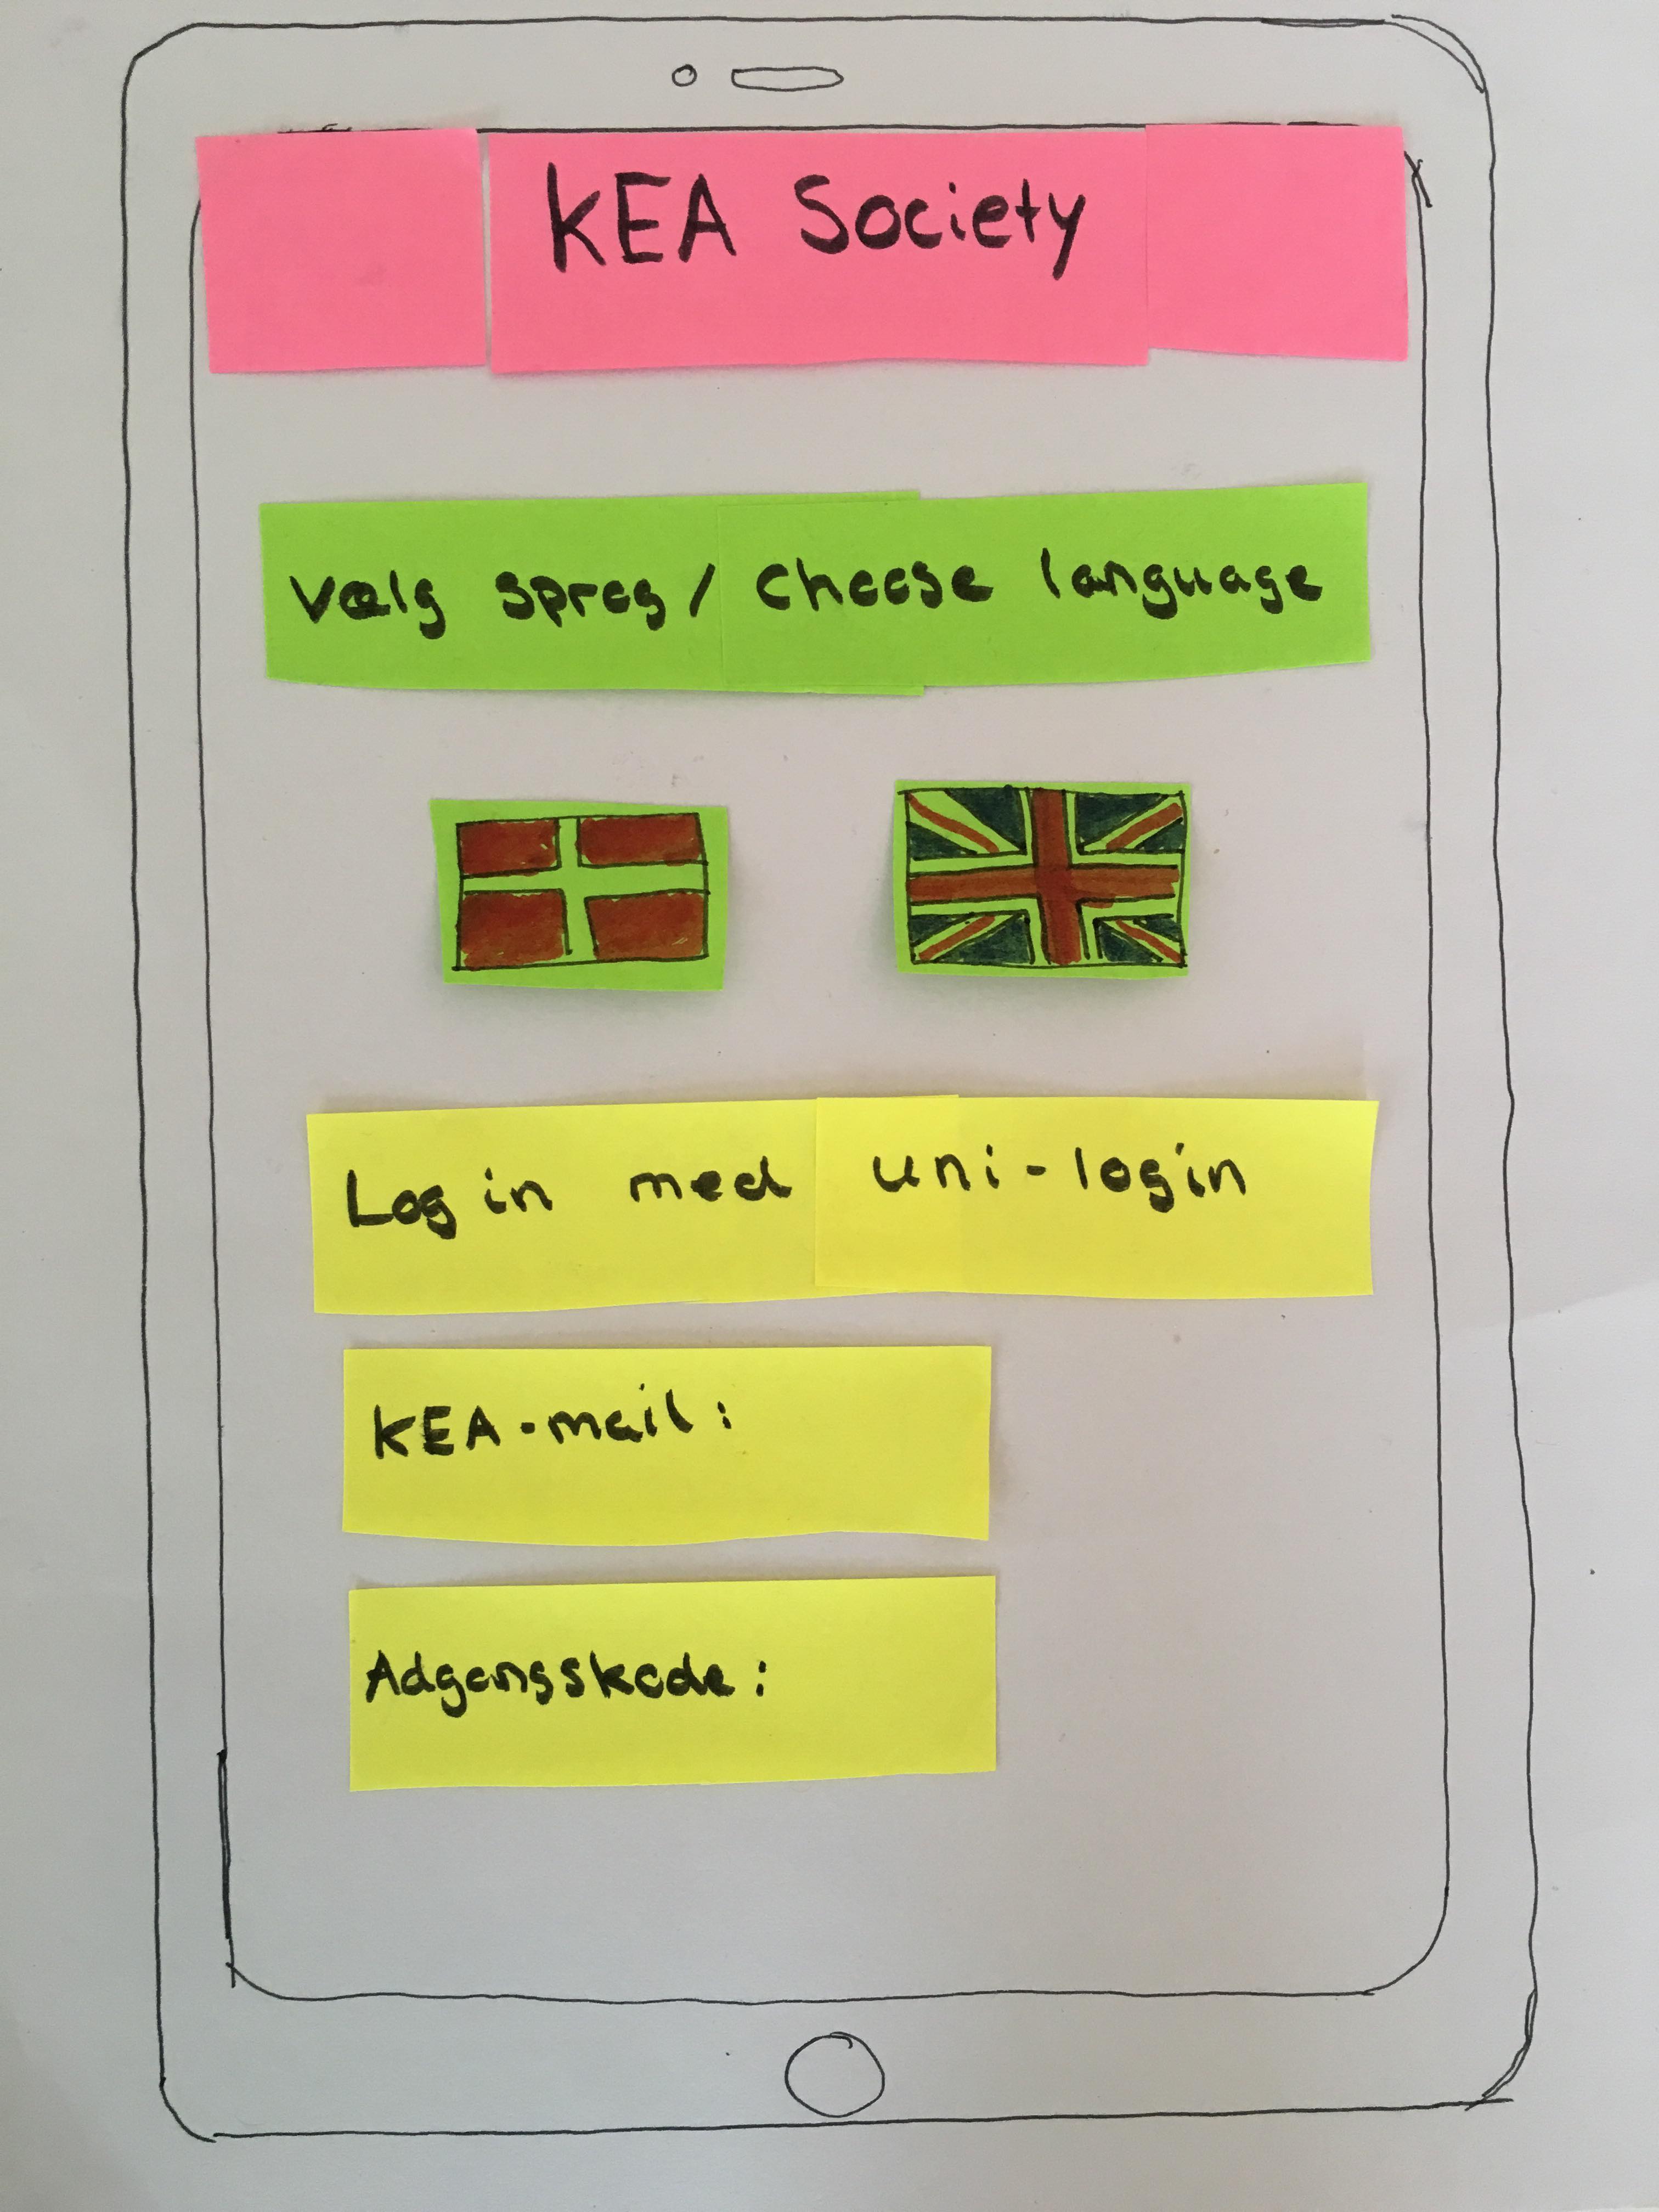 KEA Society
Vælg sprog / Choose language
Log in med uni-login
KEA-mail:
Adgangskode: